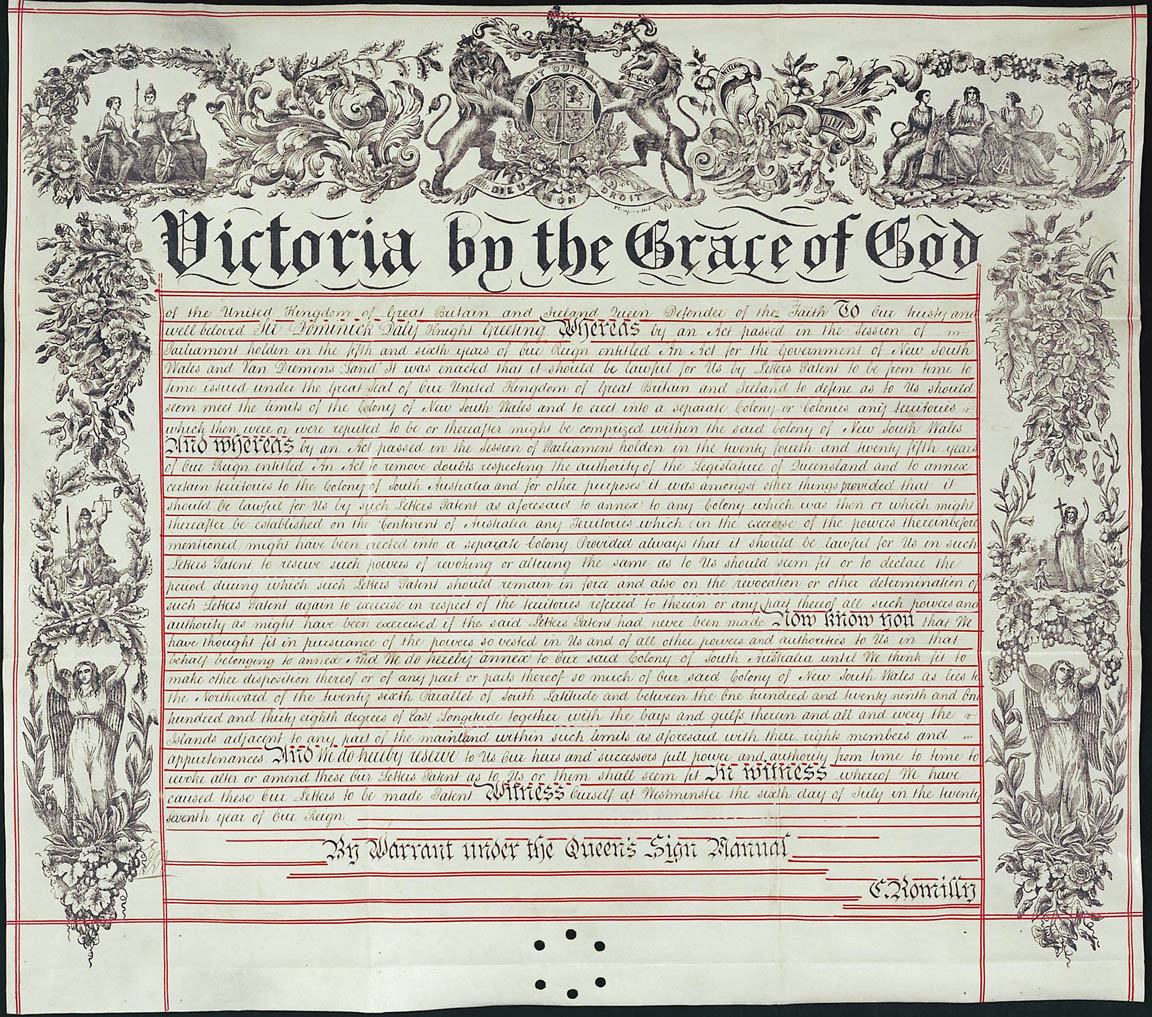 DIEU MON DROIT
Victoria by the Grace of God
of the United Kingdom of Great Britain and Ireland Queen Defender of the Faith To Our trusty and
well beloved Sir Dominick Daly Knight Greeting Whereas by an Act passed in the Session of
Parliament holden in the fifth and sixth years of Our Reign entitled An Act for the Government of New South
Wales and Van Diemens Land It was enacted that it should be lawful for Us by Letters Patent to be from time to
time issued under the Great Seal of Our United Kingdom of Great Britain and Ireland to define as to Us should
seem meet the limits of the Colony of New South Wales and to erect into a separate Colony or Colonies any territories
which then were or were reputed to be or thereafter might be comprized within the said Colony of New South Wales
And whereas by an Act passed in the Session of Parliament holden in the twenty fourth and twenty fifth years
of Our Reign entitled An Act to remove doubts respecting the authority of the Legislature of Queensland and to annex
certain territories to the Colony of South Australia and for other purposes it was amongst other things provided that it
should be lawful for Us by such Letters Patent as aforesaid to annex to any Colony which was then or which might
thereafter be established on the Continent of Australia any Territories which (in the exercise of the powers thereinbefore
mentioned might have been erected into a separate Colony Provided always that it should be lawful for Us in such
Letters Patent to reserve such powers of revoking or altering the same as to Us should seem fit or to declare the
period during which such Letters Patent should remain in force and also on the revocation or other determination of
such Letters Patent again to exercise in respect of the territories referred to therein or any part thereof all such powers and
authority as might have been exercised if the said Letters Patent had never been made Now know you that We
have thought fit in pursuance of the powers so vested in Us and of all other powers and authorities to Us in that
behalf belonging to annex And We do hereby annex to Our said Colony of South Australia until We think fit to
make other disposition thereof or of any part or parts thereof so much of our said Colony of New South Wales as lies to
the Northward of the twenty sixth Parallel of South Latitude and between the One hundred and twenty ninth and One
hundred and thirty eighth degrees of East Longitude together with the bays and gulfs therein and all and every the
Islands adjacent to any part of the mainland within such limits as aforesaid with their rights members and
appurtenances And We do hereby reserve to Us Our heirs and successors full power and authority from time to time to
revoke alter or amend these Our Letters Patent as to Us or them shall seem fit In witness whereof We have
caused these Our Letters to be made Patent Witness Ourself at Westminster the sixth day of July in the twenty
seventh year of Our Reign
By Warrant under the Queen's Sign Manual
C. Romilly